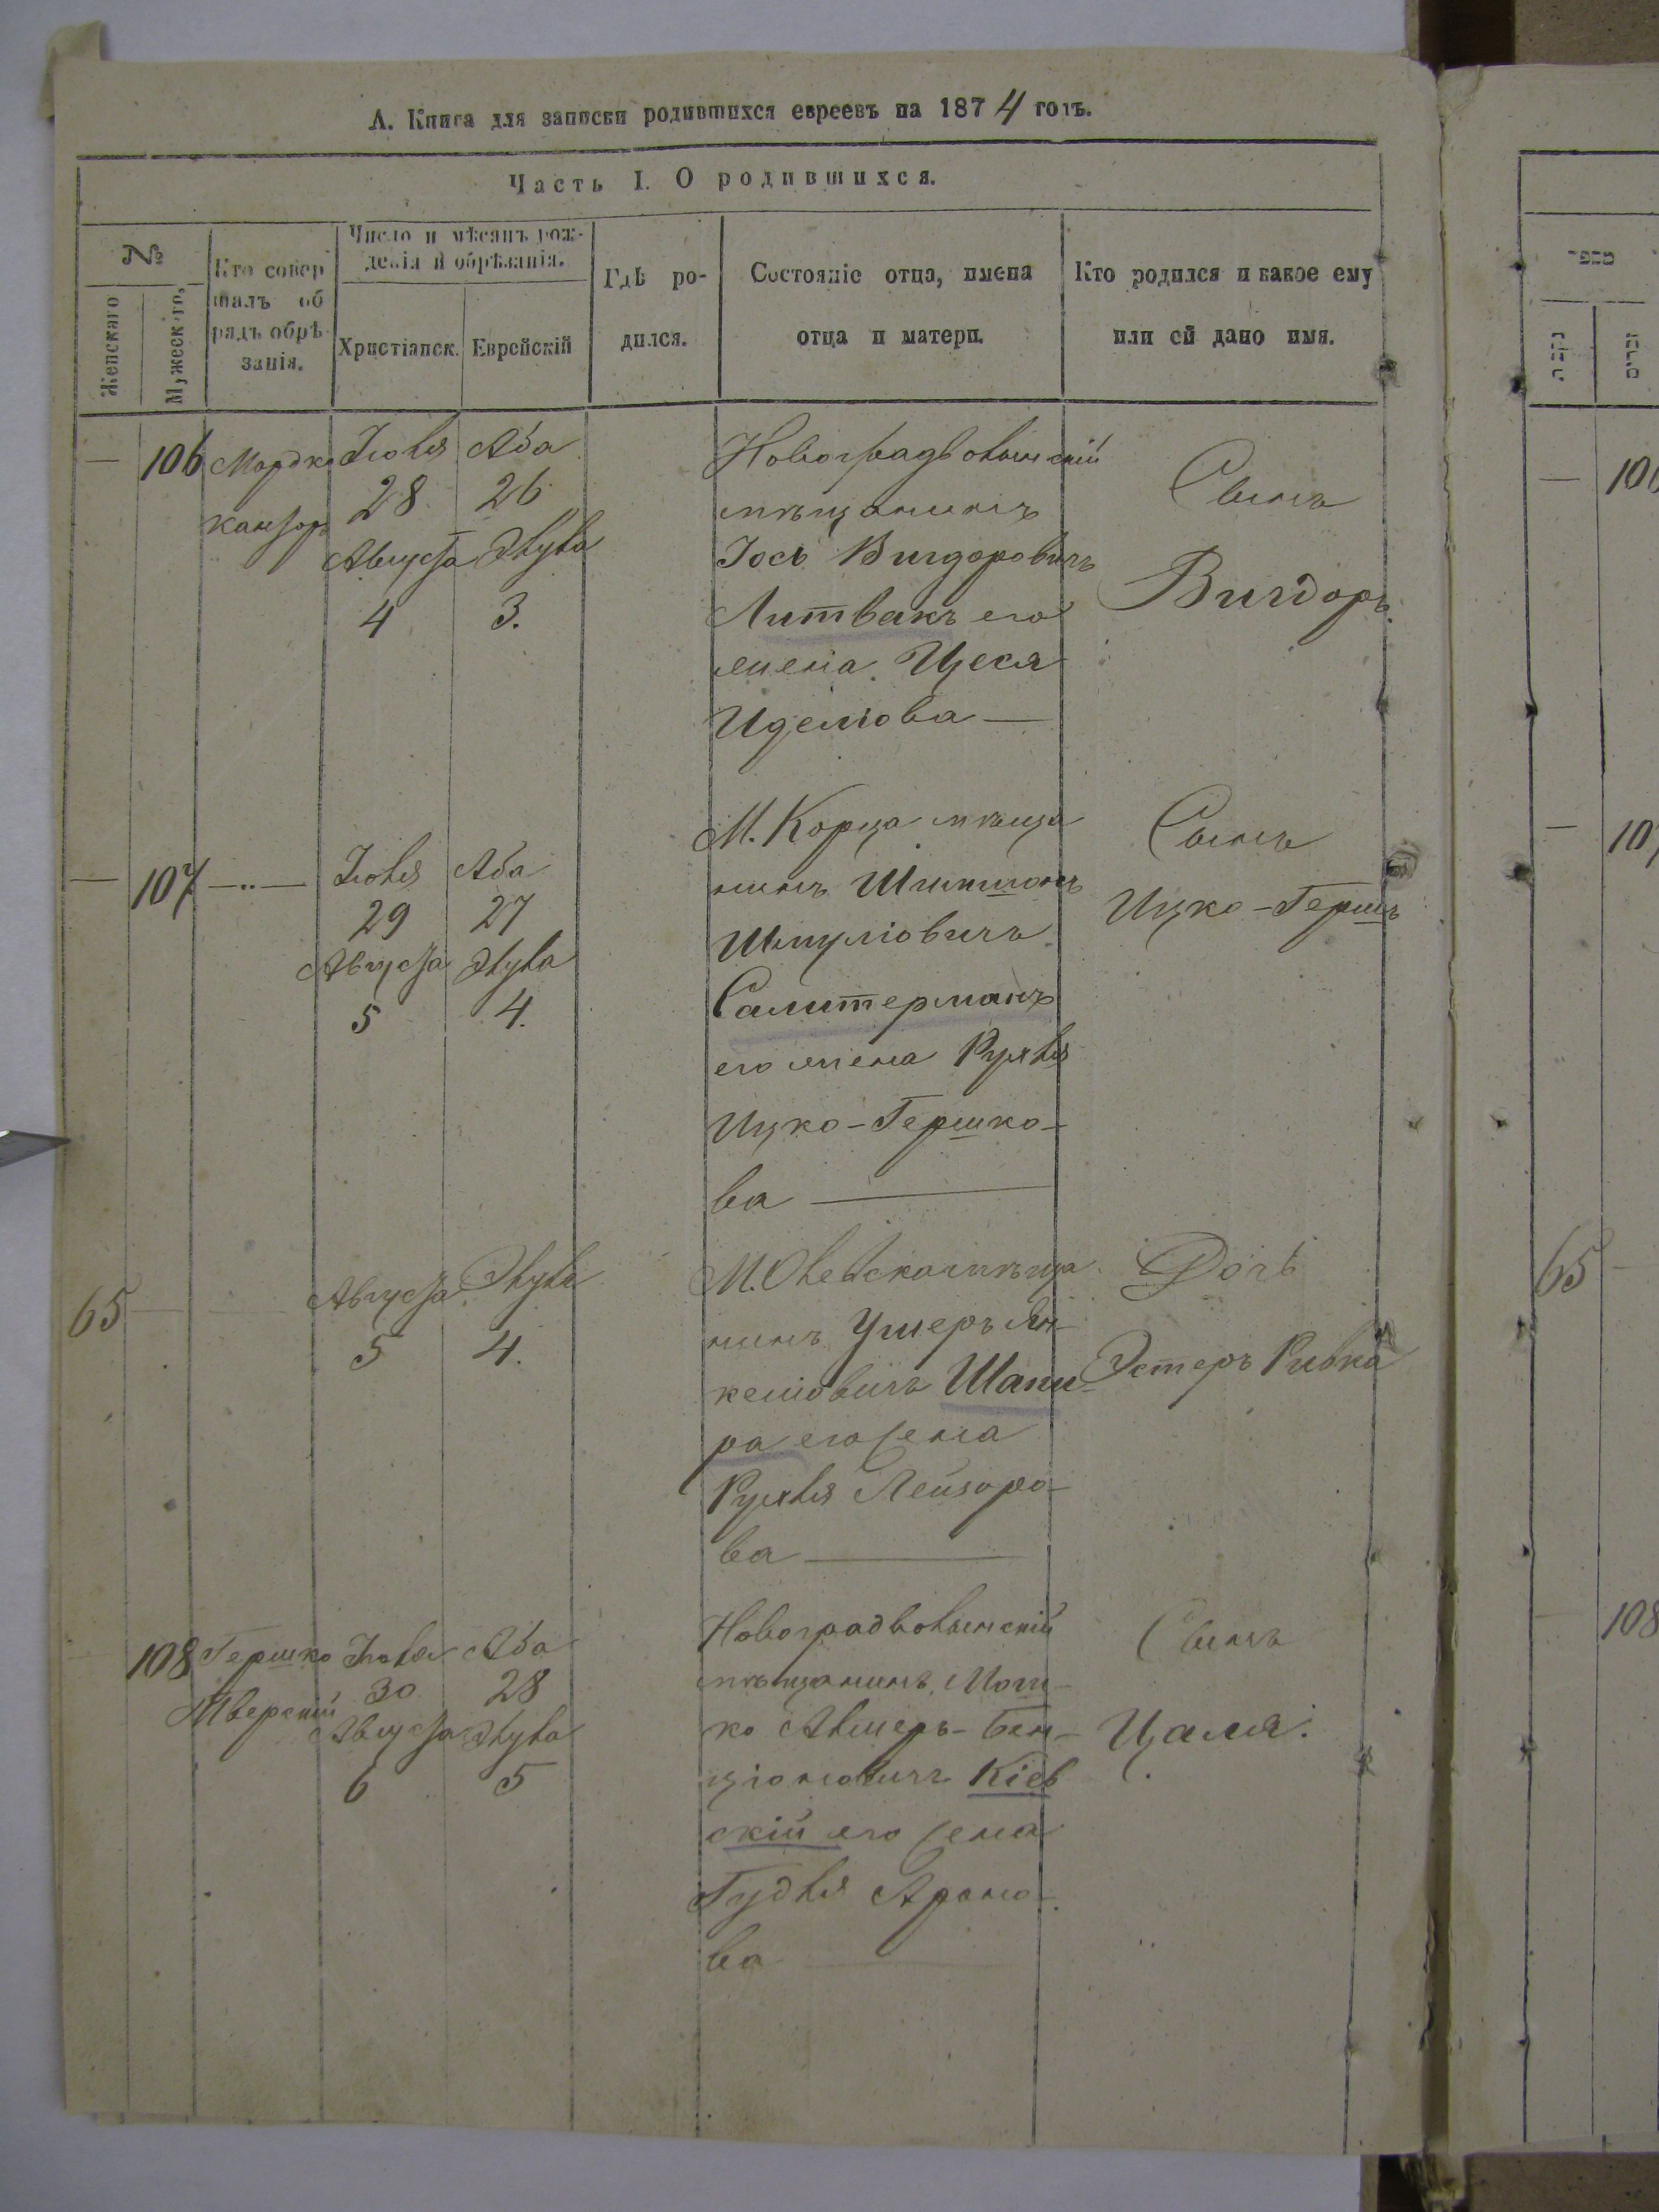 А. Книга для записки родившихся евреевъ на 1874 годъ.
Часть I. О родившихся.
№
Женскаго
Мужескаго,
Кто совер
шалъ об
рядъ обрѣ-
занія.
Число и мѣсяцъ рож-
денія и обрѣзанія.
Христіанск.
Еврейскій
Гдѣ ро-
дился.
Состояніе отца, имена
отца и матери.
Кто родился и какое ему
или ей дано имя.
— 106
Мордко
канторъ
Іюля
28
Августа
4
Аба
26
Элула
3.
Новоградволынскій
мѣщанинъ
Іось Вигдоровичъ
Литвакъ его
жена Цеся
Иделіова —
Сынъ
Вигдоръ.
— 107 — „ —
Іюля
29
Августа
5
Аба
27
Элула
4.
М. Корца мѣща
нинъ Шимшонъ
Шмуліовичъ
Салитерманъ
его жена Рухля
Ицко-Гершко-
ва —
Сынъ
Ицко-Гершъ
65 —
Августа
5
Элула
4.
М. Олевска мѣща
нинъ Ушеръ Ян-
келіовичъ Шапи-
ра его жена
Рухля Лейзоро-
ва —
Дочь
Эстеръ Ривка
108
Гершко
Тверскій
Іюля
30
Августа
6
Аба
28
Элула
5
Новоградволынскій
мѣщанинъ Мош-
ко Авмеръ-Бен-
ціоновичъ Кіев
скій его жена
Гудля Ароно-
ва —
Сынъ
Цаля.
מספר
נקבות
זכרים
— 106
— 107
65 —
108